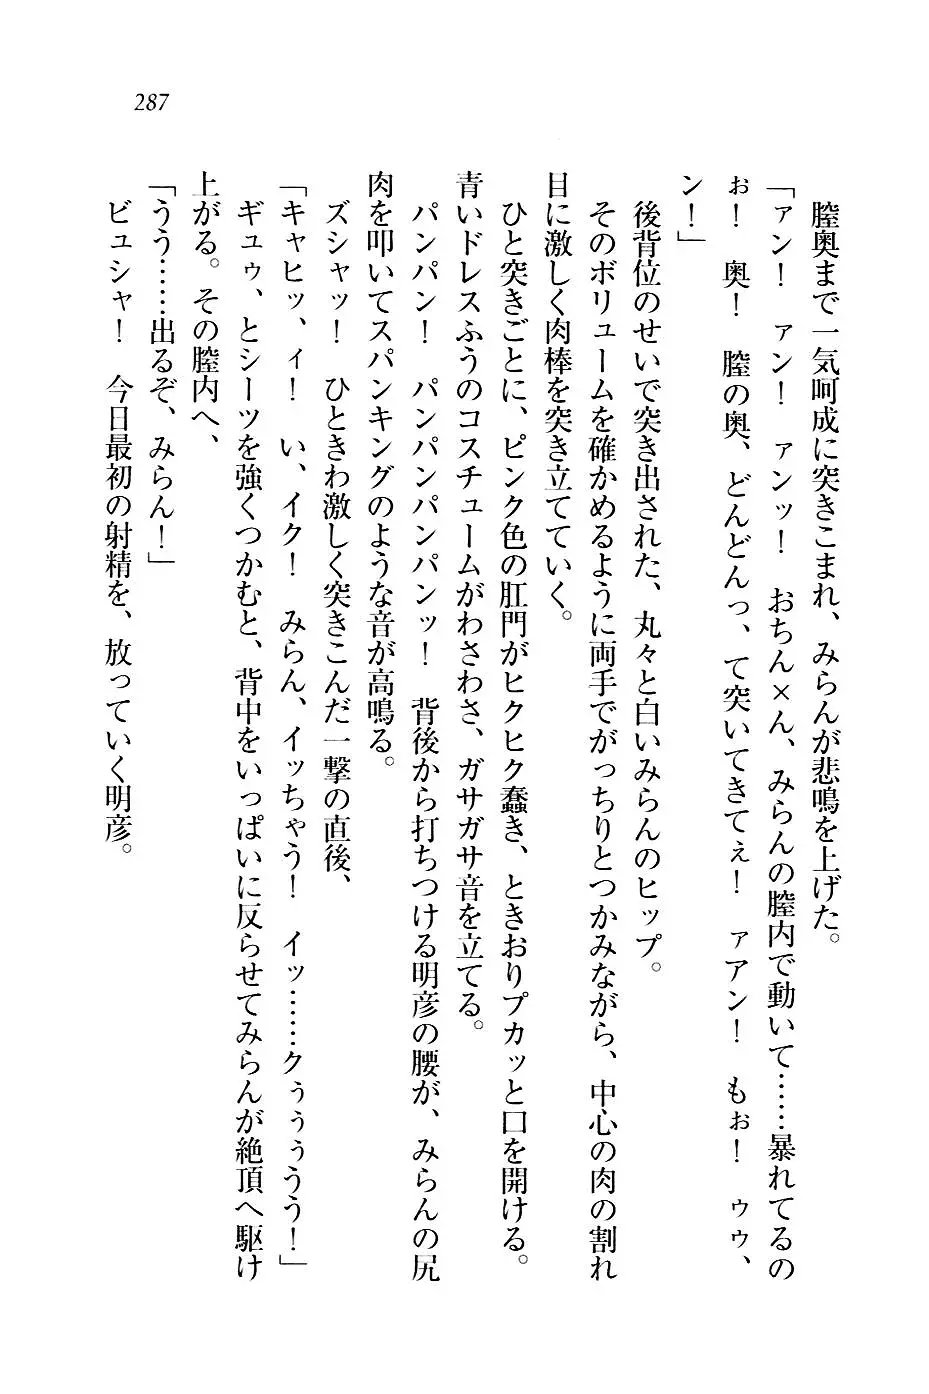 287
膣奥まで一気呵成に突きこまれ、みらんが悲鳴を上げた。
「ァン！　ァン！　ァンッ！　おちん×ん、みらんの膣内で動いて……暴れてるの
ぉ！　奥！　膣の奥、どんどんっ、て突いてきてぇ！　ァアン！　もぉ！　ゥゥ、
ン！」
後背位のせいで突き出された、丸々と白いみらんのヒップ。
そのボリュームを確かめるように両手でがっちりとつかみながら、中心の肉の割れ
目に激しく肉棒を突き立てていく。
ひと突きごとに、ピンク色の肛門がヒクヒク蠢き、ときおりプカッと口を開ける。
青いドレスふうのコスチュームがわさわさ、ガサガサ音を立てる。
パンパン！　パンパンパンパンッ！　背後から打ちつける明彦の腰が、みらんの尻
肉を叩いてスパンキングのような音が高鳴る。
ズシャッ！　ひときわ激しく突きこんだ一撃の直後、
「キャヒッ、ィ！　い、イク！　みらん、イッちゃう！　イッ……クぅぅぅうう！」
ギュゥ、とシーツを強くつかむと、背中をいっぱいに反らせてみらんが絶頂へ駆け
上がる。その膣内へ、
「うう……出るぞ、みらん！」
ビュシャ！　今日最初の射精を、放っていく明彦。